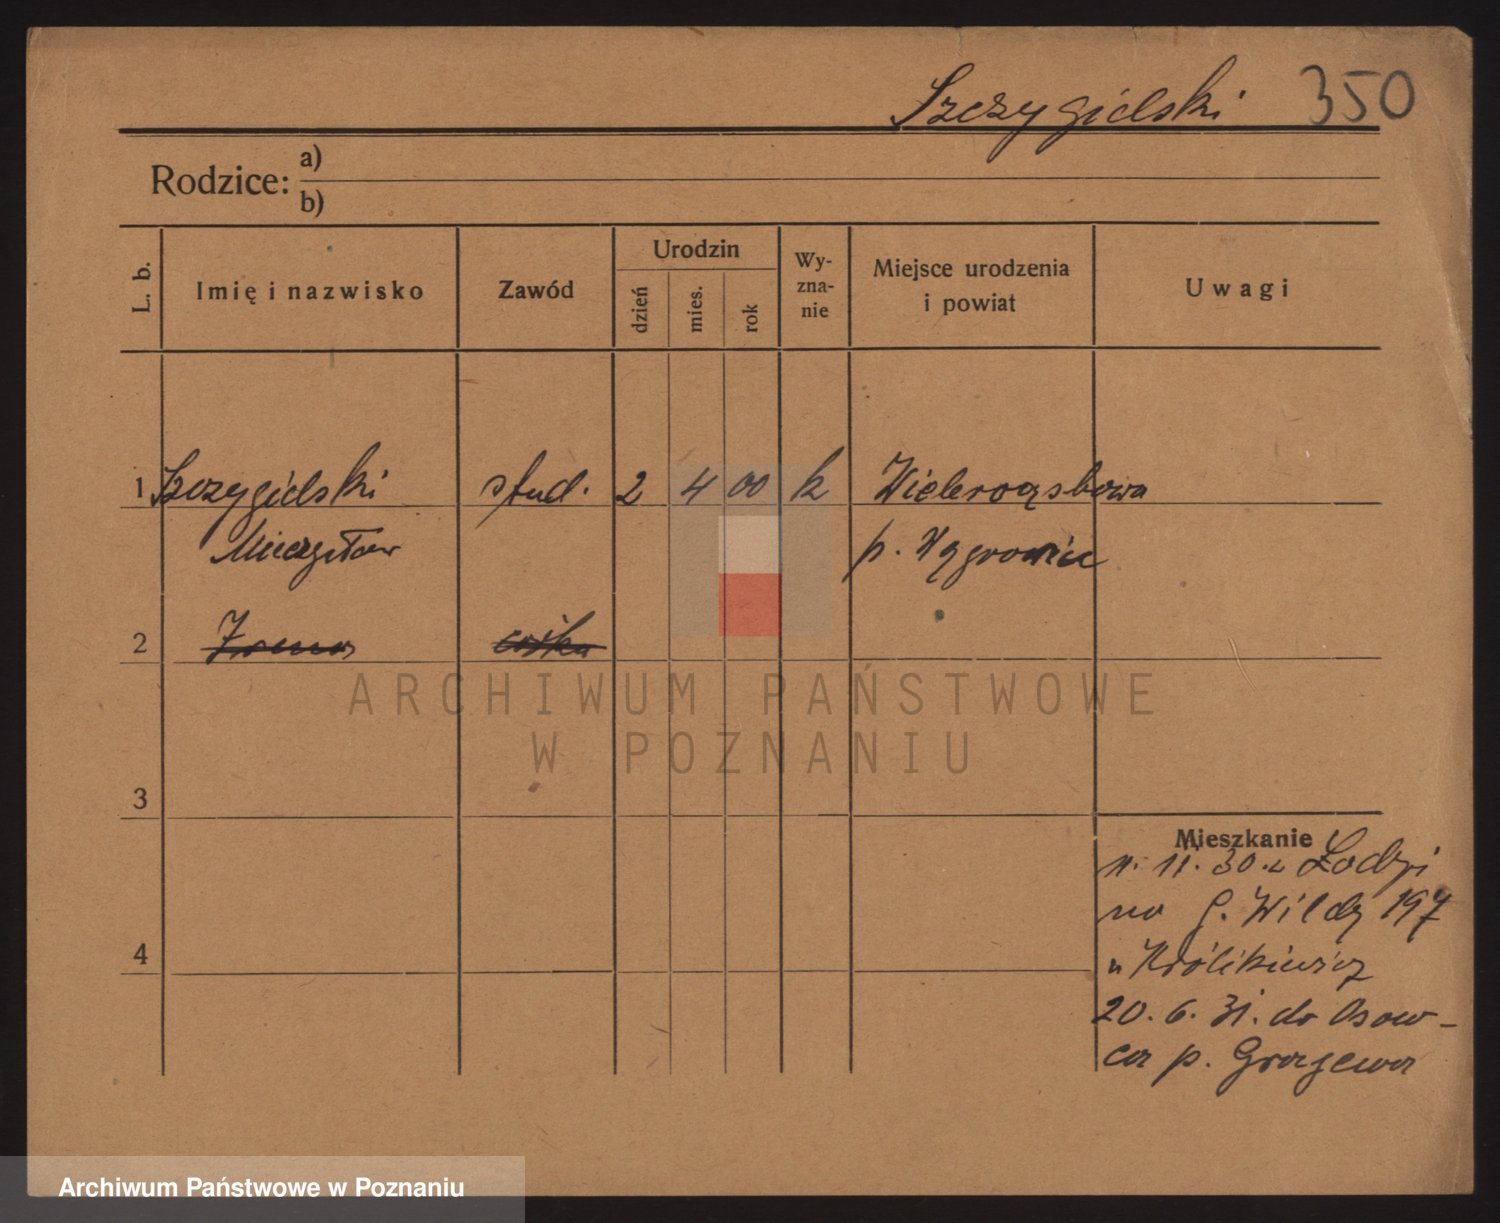 Szczygielski 350
Rodzice: a)
b)
L. b.
Imię i nazwisko
Zawód
Urodzin
dzień
mies.
rok
Wy-
zna-
nie
Miejsce urodzenia
i powiat
Uwagi
1 Szczygielski stud. 2 4 00 k
Mieczysław p. Wągrowiec
2 Irena córka
3
4
Mieszkanie
11. 30 z Łodzi
na G. Wildę 197
u Królikiewicz
20. 6. 31. do Osow-
ca p. Grajewo
ARCHIWUM PAŃSTWOWE
W POZNANIU
Archiwum Państwowe w Poznaniu